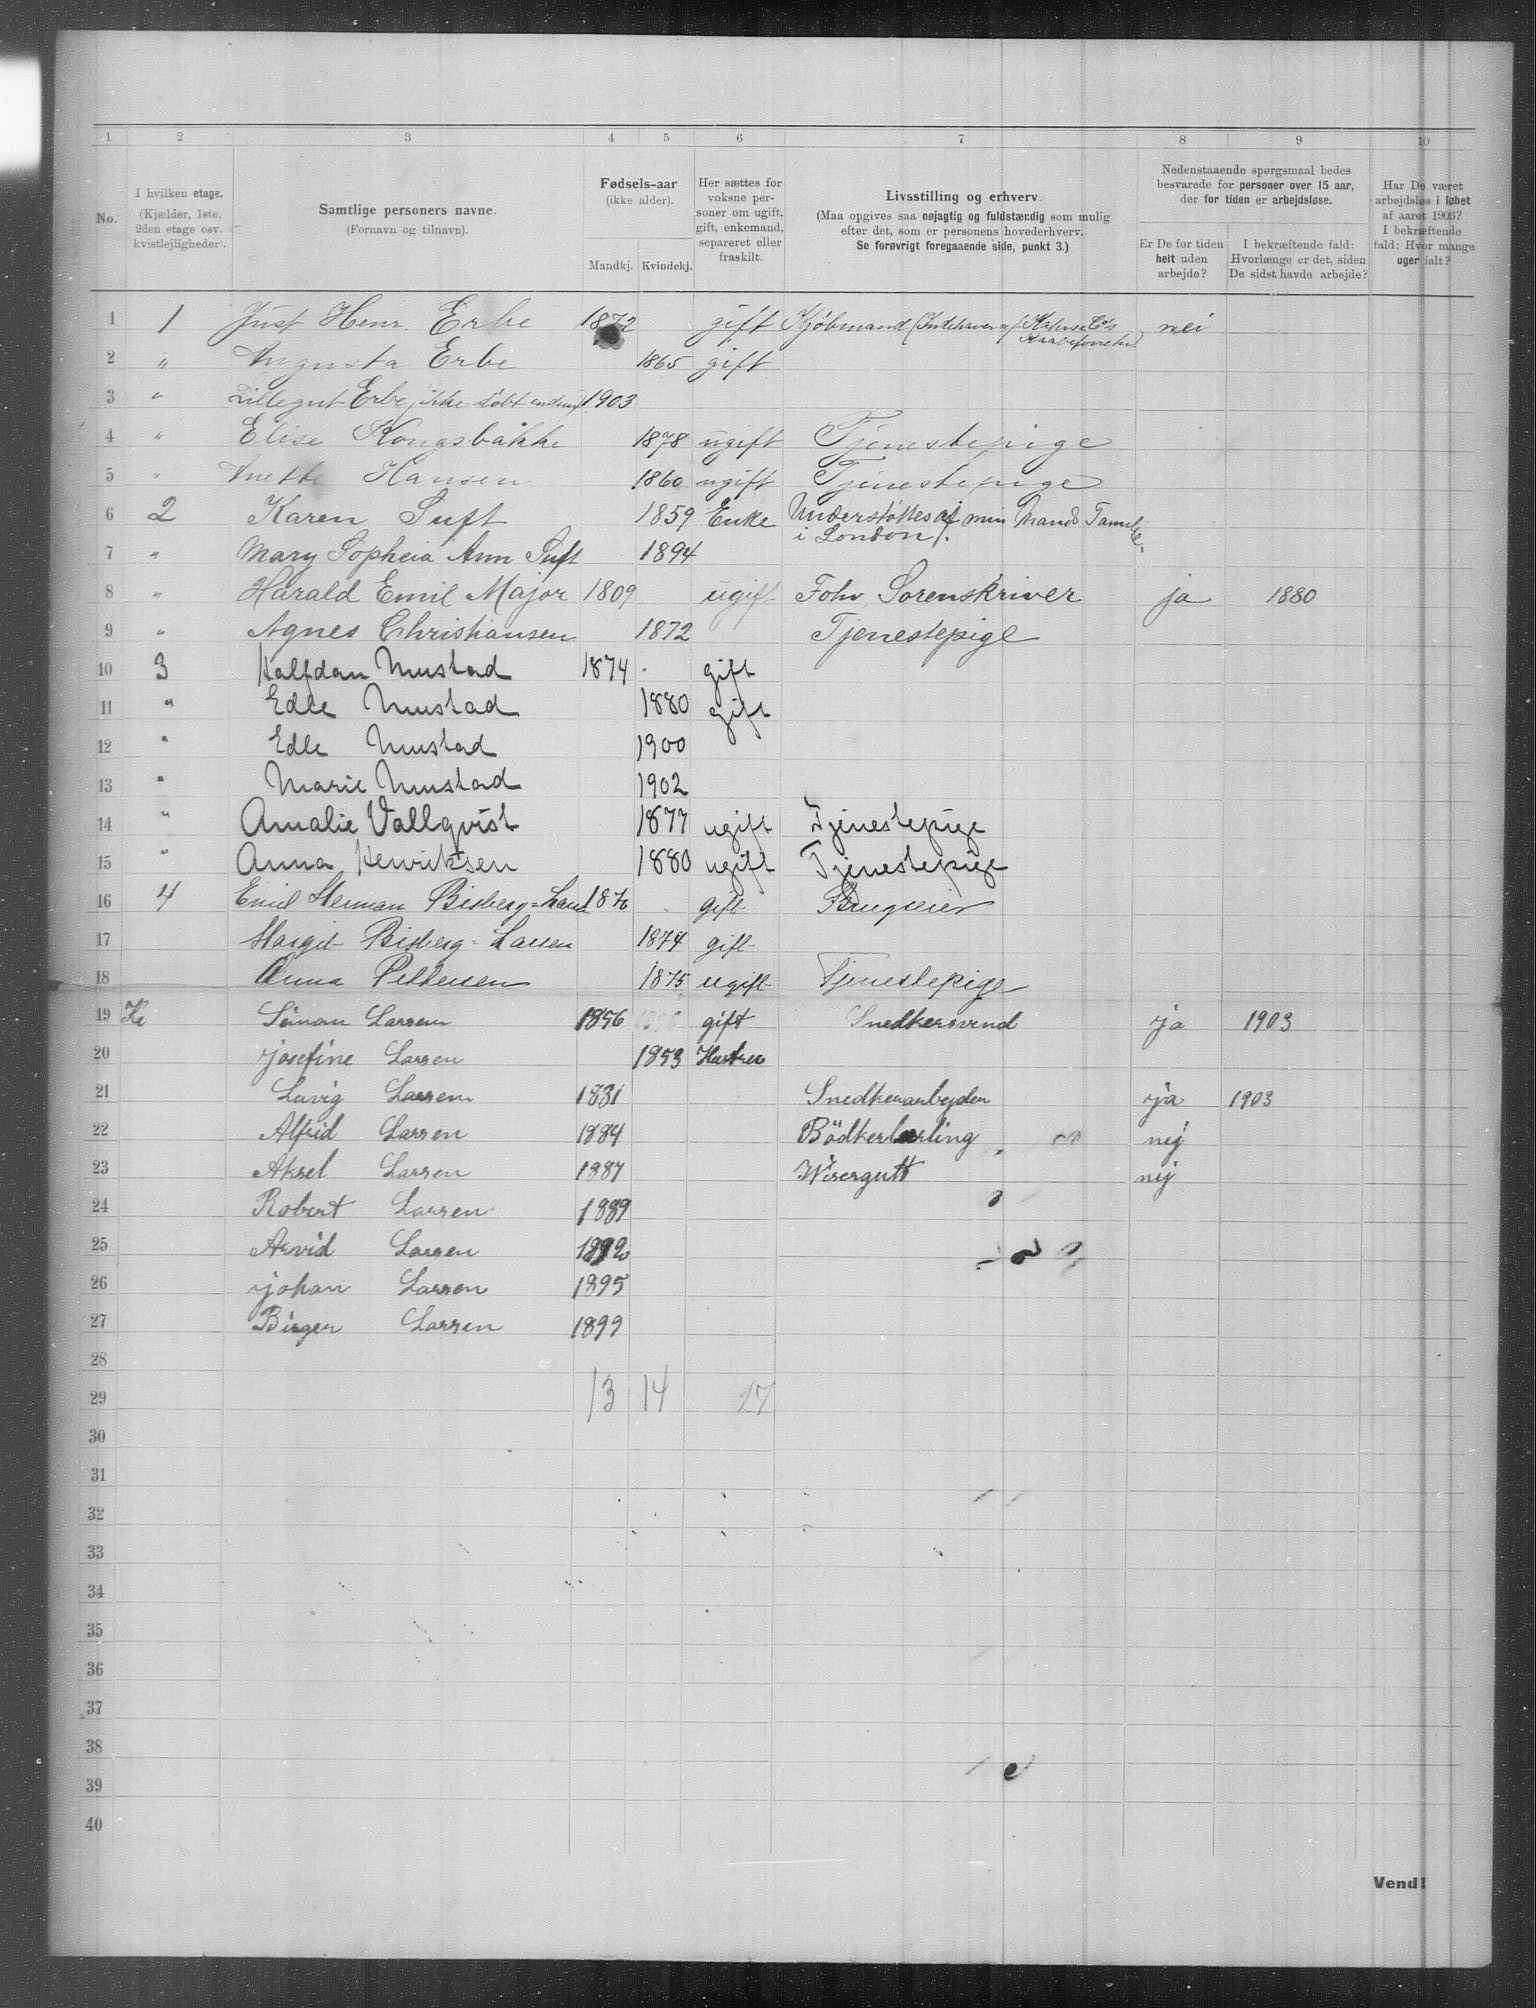 1 2 3 4 5 6 7 8 9 10
No.
I hvilken etage.
(Kjælder, 1ste,
2den etage osv.
kvistlejligheder).
Samtlige personers navne.
(Fornavn og tilnavn).
Fødsels-aar
(ikke alder).
Mandkj. Kvindekj.
Her sættes for
voksne per-
soner om ugift,
gift, enkemand,
separeret eller
fraskilt.
Livsstilling og erhverv.
(Maa opgives saa nøjagtig og fuldstændig som mulig
efter det, som er personens hovederhverv.
Se forøvrigt foregaaende side, punkt 3.)
Nedenstaaende spørgsmaal bedes
besvarede for personer over 15 aar,
der for tiden er arbejdsløse.
Er De for tiden
helt uden
arbejde?
I bekræftende fald:
Hvorlænge er det, siden
De sidst havde arbejde?
Har De været
arbejdsløs i løbet
af aaret 1903?
I bekræftende
fald: Hvor mange
uger ialt?
1 1 Just Henr. Erbe 1872 gift Kjøbmand (Indehaver af nei
2 " Augusta Erbe 1865 gift
3 " Lillegut Erbe (ikke døbt endnu) 1903
4 " Elise Kongsbakke 1878 ugift Tjenestepige
5 " Anette Hansen 1860 ugift Tjenestepige
6 2 Karen Suft 1859 Enke Understøttes af min Mands Familie
i London.
7 " Mary Sopheia Ann Suft 1894
8 " Harald Emil Major 1809 ugift Fohv Sorenskriver ja 1880
9 " Agnes Christiansen 1872 Tjenestepige
10 3 Halfdan Mustad 1874 gift
11 " Edle Mustad 1880 gift
12 " Edle Mustad 1900
13 " Marie Mustad 1902
14 " Amalie Vallqvist 1877 ugift Tjenestepige
15 " Anna Henriksen 1880 ugift Tjenestepige
16 4 Emil Herman Bisberg=Lars 187 gift Brugseier
17 Margit Bisberg-Larsen 1874 gift
18 Anna Pettersen 1875 ugift Tjenestepige
19 Kæ Siman Larsen 1856 gift Snedkersvend ja 1903
20 Josefine Larsen 1853 Hustru
21 Luvig Larsen 1881 Snedkerarbejder ja 1903
22 Alfrid Larsen 1884 Bödkerlærling nej
23 Aksel Larsen 1887 Wisergutt nej
24 Robert Larsen 1889
25 Arvid Larsen 1892
26 Johan Larsen 1895
27 Birger Larsen 1899
28
29 13 14 27
30
31
32
33
34
35
36
37
38
39
40
Vend!